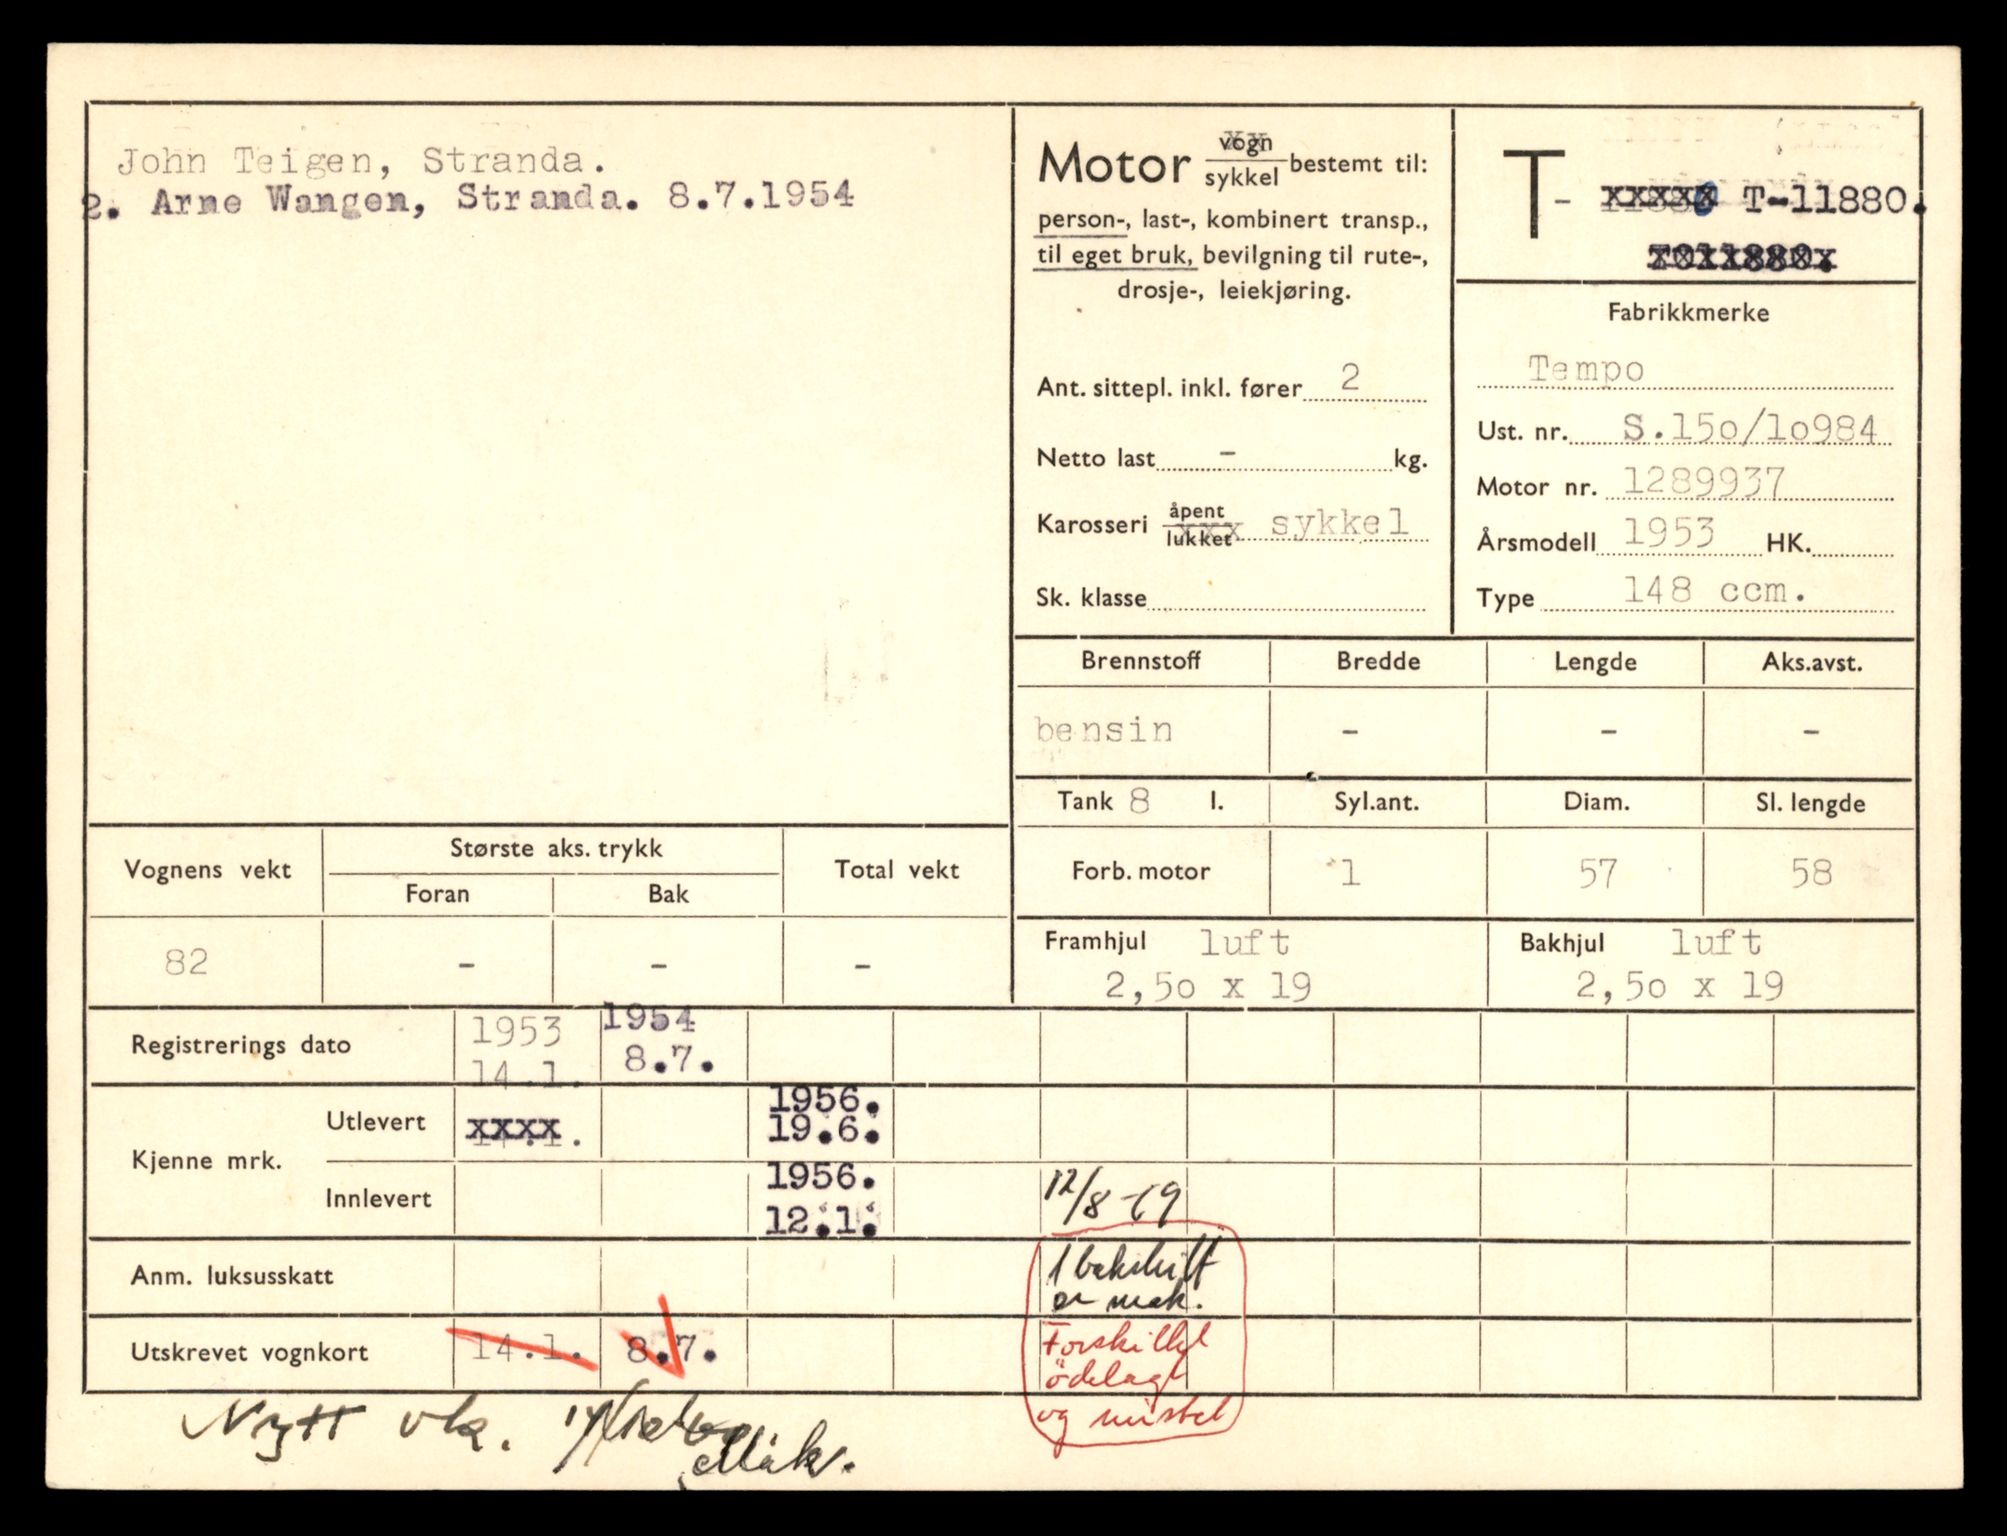 John Teigen, Stranda.
2. Arne Wangen, Stranda. 8.7.1954
Motor vogn sykkel bestemt til:
person-, last-, kombinert transp.,
til eget bruk, bevilgning til rute-,
drosje-, leiekjøring.
Ant. sittepl. inkl. fører 2
Netto last - kg.
Karosseri åpent lukket sykkel
Sk. klasse
T- T-11880.
T011880.
Fabrikkmerke
Tempo
Ust. nr. S.15o/1o984
Motor nr. 1289937
Årsmodell 1953 HK.
Type 148 ccm.
Brennstoff Bredde Lengde Aks.avst.
bensin - - -
Tank 8 l. Syl.ant. Diam. Sl. lengde
Forb. motor 1 57 58
Framhjul luft Bakhjul luft
2,5o x 19 2,5o x 19
Vognens vekt Største aks. trykk Total vekt
Foran Bak
82 - - -
Registrerings dato 1953 1954
14.1. 8.7.
Kjenne mrk. Utlevert xxxx. 1956.
19.6.
Innlevert 1956.
12.1.
12/8-69
Anm. luksusskatt
1 bakskilt
er mak.
Utskrevet vognkort 14.1. 8.7.
Forskiltet
ödelagt
og mistet
Nytt vk.